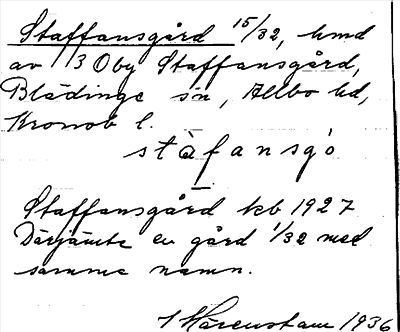 Staffansgård 15/32, hmd
av 3 Oby Staffansgård,
Blädinge sn, Allbo hd,
Kronob l.
stàfansgo
Staffansgård kb 1927
Därjämte en gård 1/32 med
samma namn.
Hårenstam 1936